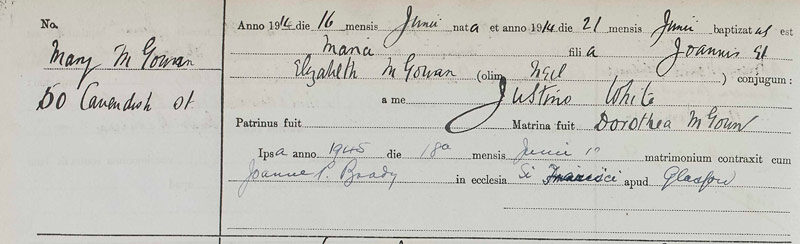 No.
Mary McGowan
50 Cavendish St
Anno 1914 die 16 mensis Junii nata et anno 1914 die 21 mensis Junii baptizatus est
Maria filia Joannis et
Elizabeth McGowan (olim Neil) conjugum:
a me Justino White
Patrinus fuit Matrina fuit Dorothea McGowan
Ipsa anno 1945 die 18a mensis Junii matrimonium contraxit cum
Joanne P. Brady in ecclesia Si Francisci apud Glasgow